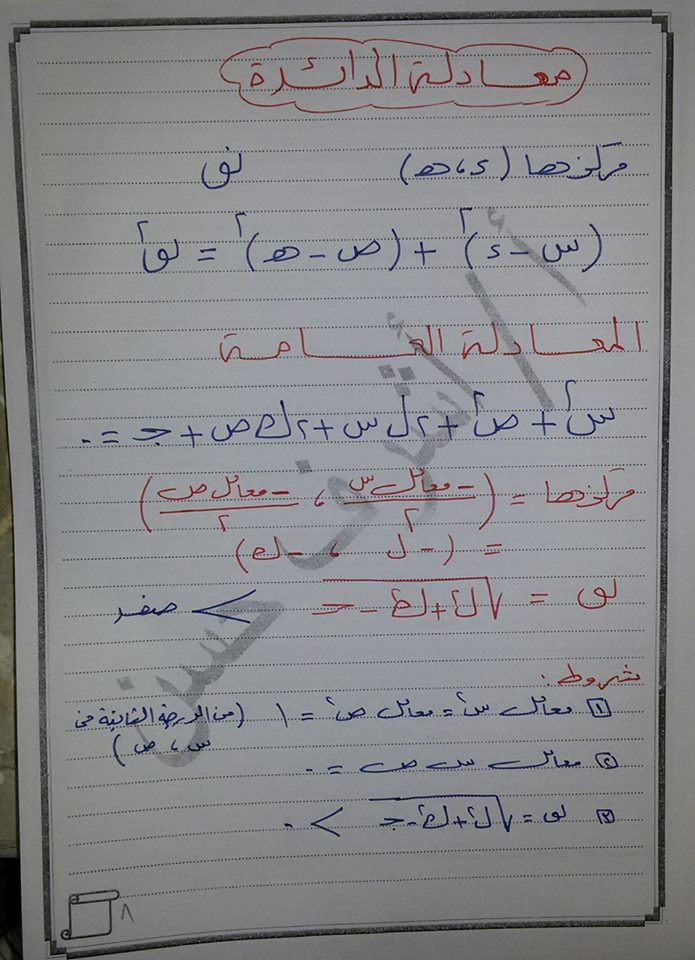 معادلة الدائرة
مركزها (د، هـ) نق
(س - د)² + (ص - هـ)² = نق²
المعادلة العامة
س² + ص² + ٢ل س + ٢ك ص + جـ = ٠
مركزها = (-معامل س/٢ ، -معامل ص/٢)
= (-ل ، -ك)
نق = √(ل² + ك² - جـ) > صفر
شروط:
١ معامل س² = معامل ص² = ١ (من الدرجة الثانية في
س، ص)
٢ معامل س ص = ٠
٣ نق = √(ل² + ك² - جـ) > ٠
٨
أ/ أشرف حسن